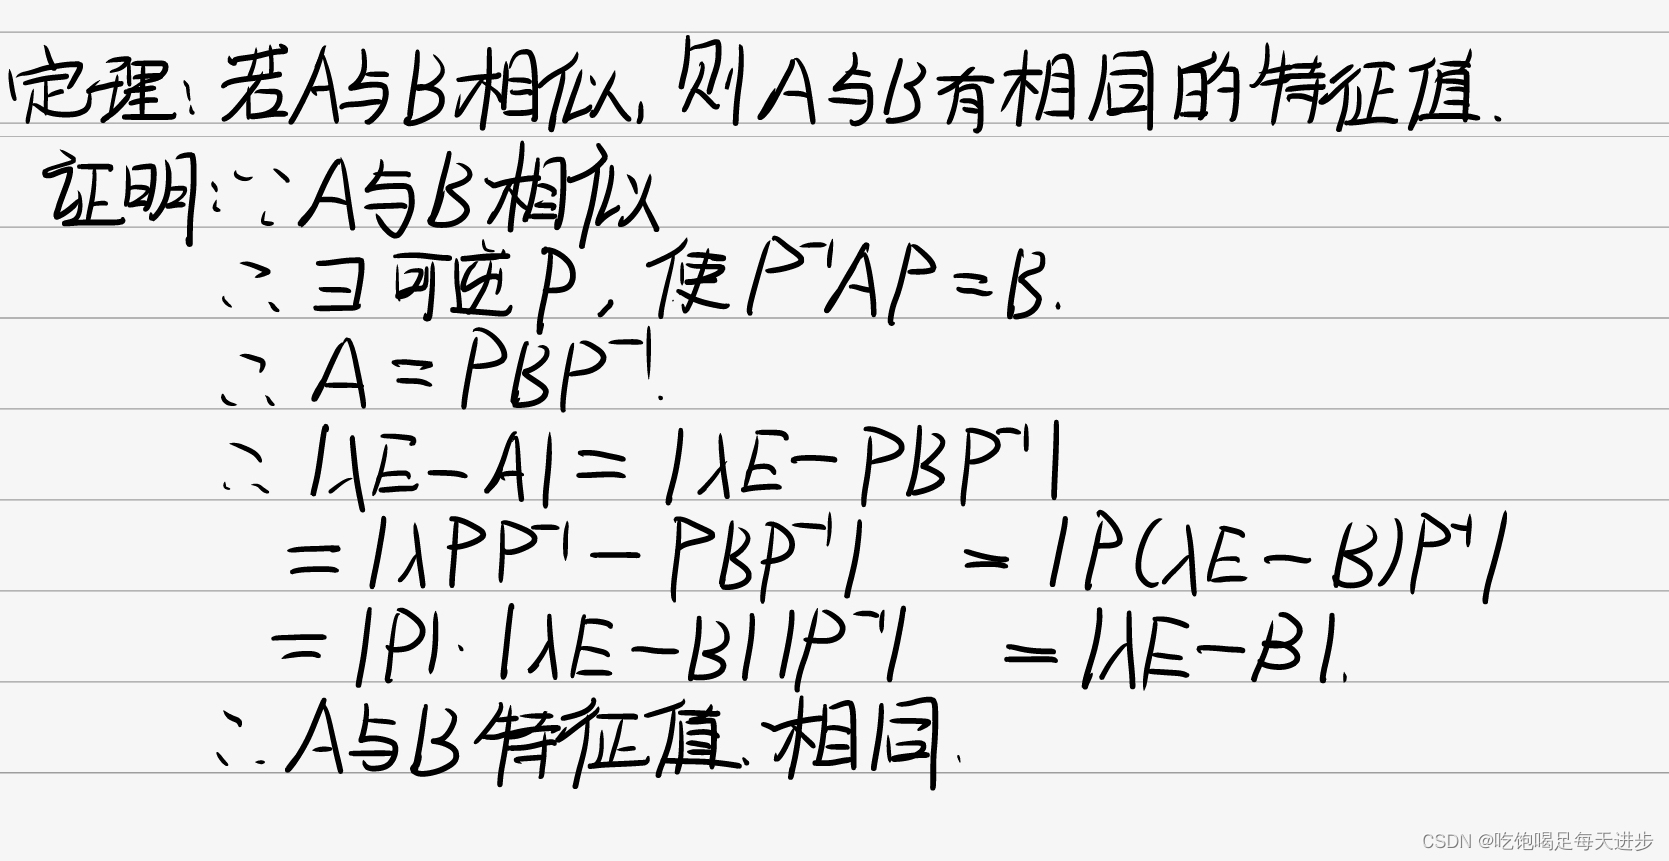 定理:若A与B相似,则A与B有相同的特征值.
证明:∵A与B相似
∴∃可逆P,使P⁻¹AP=B.
∴A=PBP⁻¹.
∴|λE-A|=|λE-PBP⁻¹|
=|λPP⁻¹-PBP⁻¹| =|P(λE-B)P⁻¹|
=|P|·|λE-B||P⁻¹| =|λE-B|.
∴A与B特征值相同.
CSDN @吃饱喝足每天进步